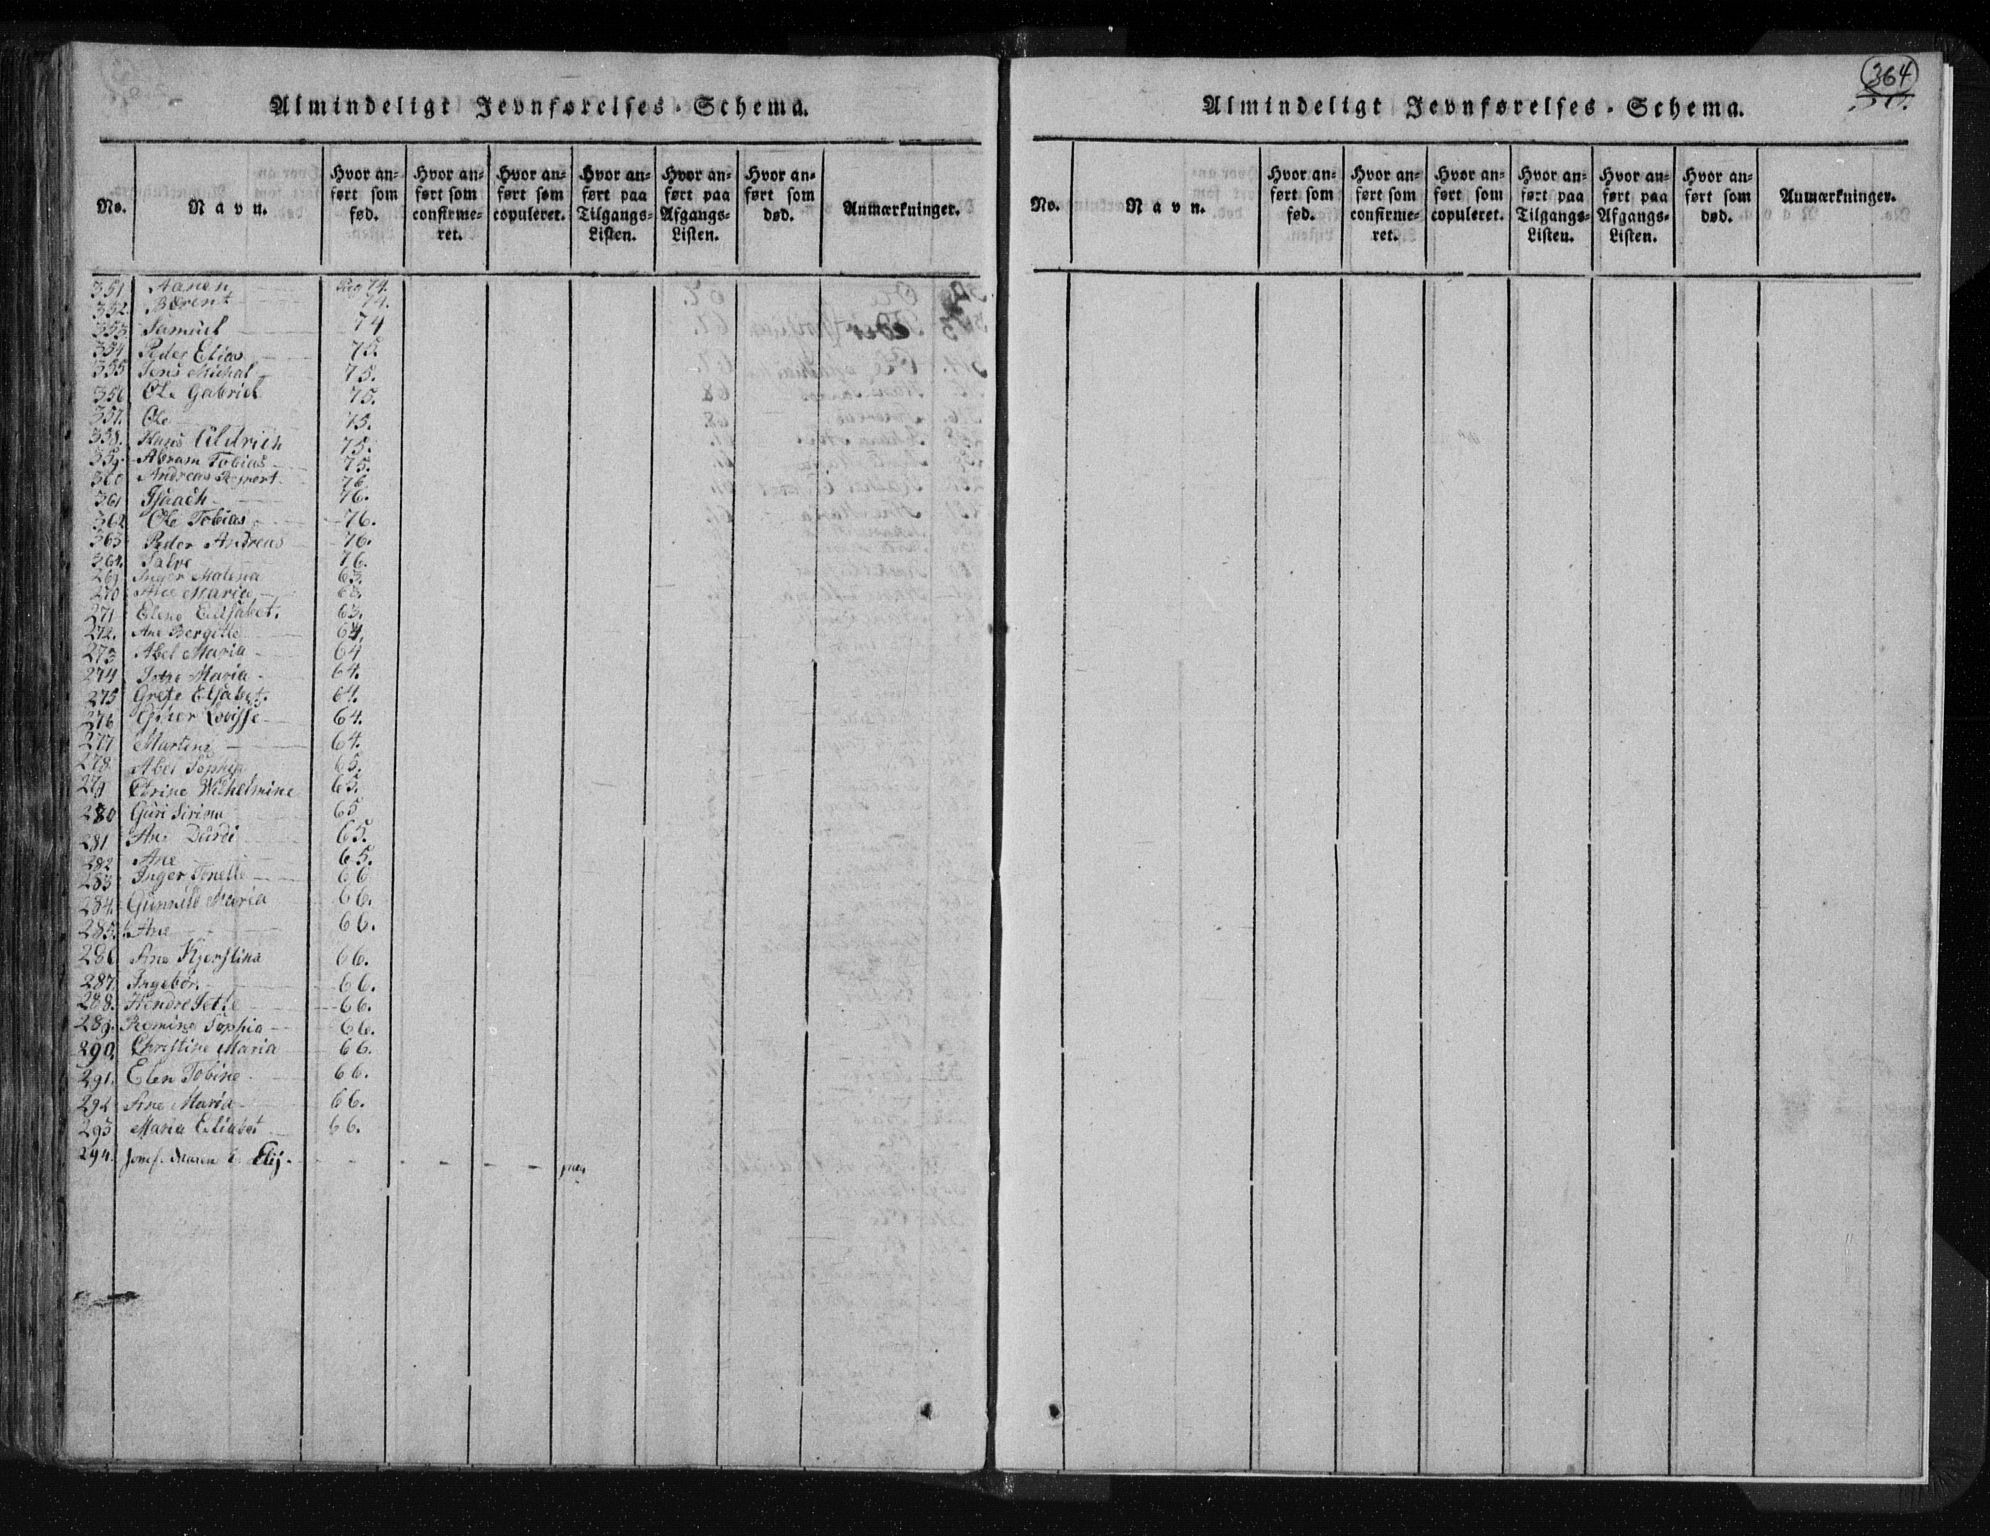 Almindeligt Jevnførelses-Schema.
No. Navn. Hvor anført som fød. Hvor anført som confirmeret. Hvor anført som copuleret. Hvor anført paa Tilgangs-Listen. Hvor anført paa Afgangs-Listen. Hvor anført som død. Anmærkninger.
351. Aanen Pag 74.
352. Berent 74.
353 Samuel 74
354 Peder Elias 75.
355 Jens Michal 75.
356 Ole Gabriel 75.
357. Ole 75.
358. Hans Aldrich 75.
359. Abram Tobias 75.
360 Andreas 76.
361 Isaach 76.
362 Ole Tobias 76.
363 Peder Andreas 76.
364. Salve 76.
269 Inger Malena 63.
270 Ane Maria 63.
271 Elene Elisabet. 63.
272. Ane Bergitte 64.
273 Abel Maria 64
274 Maria 64.
275 Grete Elsabet. 64.
276 Lovisse 64.
277 Martine 64.
278. Abel Sophia 65.
279 Wilhelmine 65.
280 Guri Sirina 65
281 Ane 65.
282 Ane 65.
283 Inger Tonette 66
284. Gunnild Maria 66.
285. Ane 66.
286 Ane Kjerstina 66.
287. Ingebor 66.
288. Hendrejette 66.
289. Sophia 66.
290. Christine Maria 66.
291. Elen Tobine 66.
292 Ane Maria 66.
293 Maria Elisabet 66.
294.
364
Almindeligt Jevnførelses-Schema.
No. Navn. Hvor anført som fød. Hvor anført som confirmeret. Hvor anført som copuleret. Hvor anført paa Tilgangs-Listen. Hvor anført paa Afgangs-Listen. Hvor anført som død. Anmærkninger.